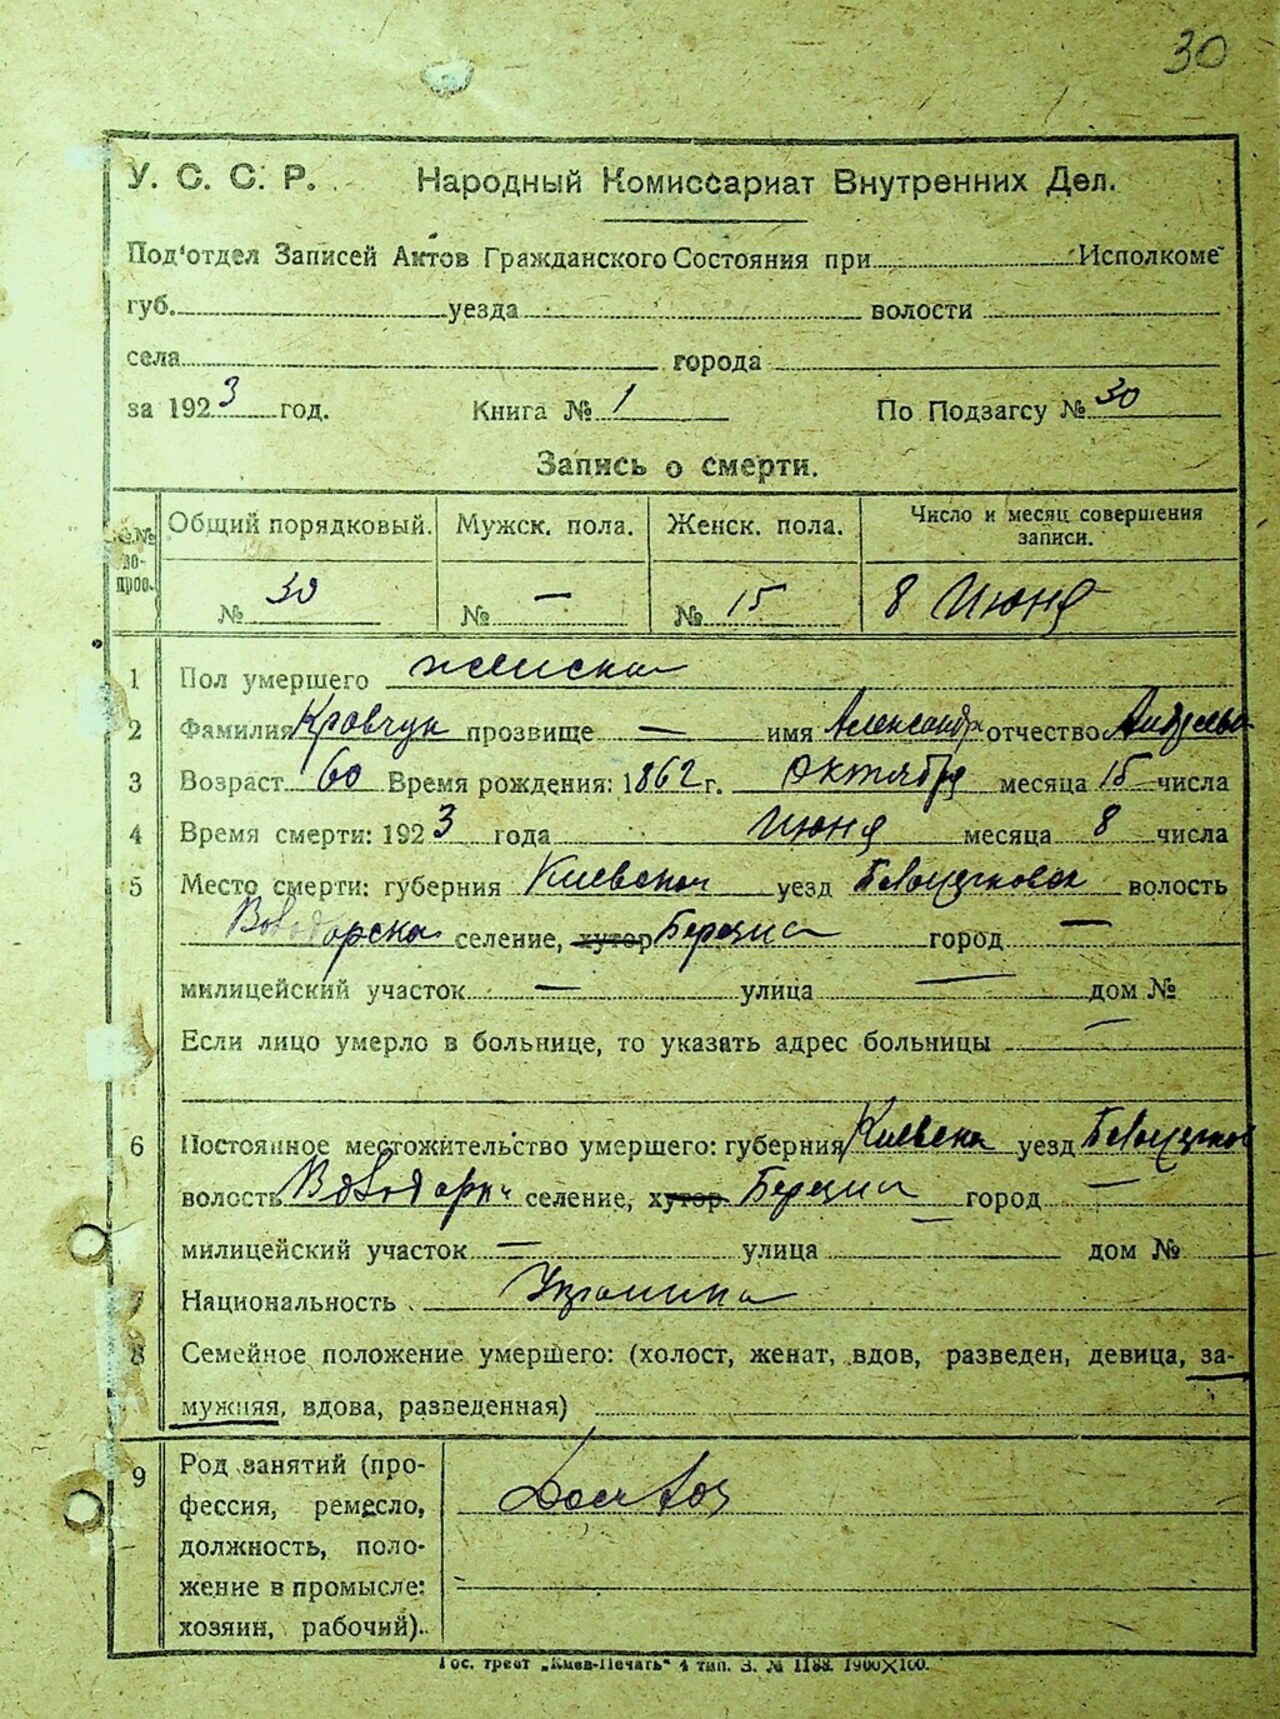 30
У. С. С. Р. Народный Комиссариат Внутренних Дел.
Под'отдел Записей Актов Гражданского Состояния при Исполкоме
губ. уезда волости
села города
за 1923 год. Книга № 1 По Подзагсу № 30
Запись о смерти.
№№ во- прос. Общий порядковый. Мужск. пола. Женск. пола. Число и месяц совершения записи.
№ 30 № — № 15 8 Июня
1 Пол умершего женска
2 Фамилия Кравчук прозвище — имя Александр отчество
3 Возраст 60 Время рождения: 1862 г. октября месяца 15 числа
4 Время смерти: 1923 года Июня месяца 8 числа
5 Место смерти: губерния Киевской уезд волость
селение, хутор Березна город —
милицейский участок — улица — дом №
Если лицо умерло в больнице, то указать адрес больницы —
6 Постоянное местожительство умершего: губерния Киевска уезд
волость селение, хутор Березна город —
милицейский участок — улица — дом №
7 Национальность
8 Семейное положение умершего: (холост, женат, вдов, разведен, девица, за-
мужняя, вдова, разведенная)
9 Род занятий (про-
фессия, ремесло,
должность, поло-
жение в промысле:
хозяин, рабочий)..
Гос. трест „Киев-Печать“ 4 тип. З. № 1188. 1900X100.